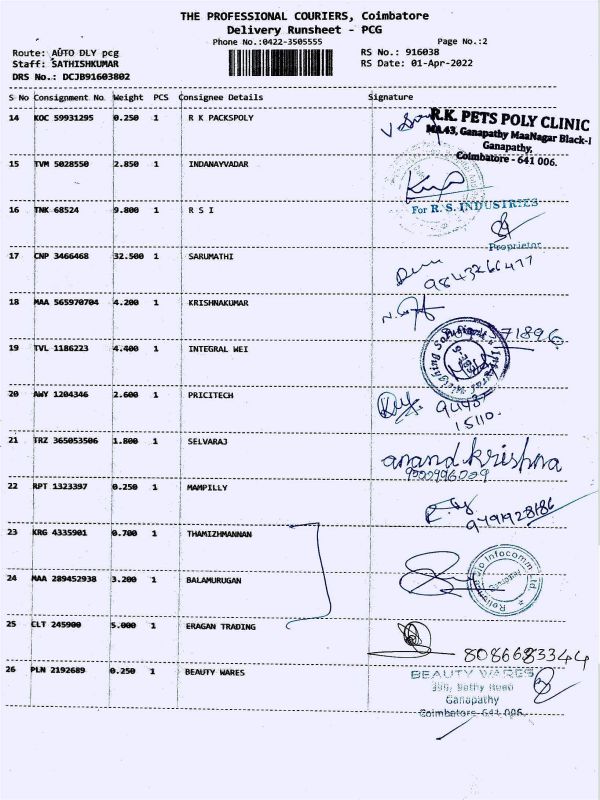 THE PROFESSIONAL COURIERS, Coimbatore
Delivery Runsheet - PCG
Phone No.:0422-3505555 Page No.:2
Route: AUTO DLY pcg RS No.: 916038
Staff: SATHISHKUMAR RS Date: 01-Apr-2022
DRS No.: DCJB91603802
S No Consignment No. Weight PCS Consignee Details Signature
14 KOC 59931295 0.250 1 R K PACKSPOLY
R.K. PETS POLY CLINIC
MA.43, Ganapathy MaaNagar Black-I
Ganapathy,
Coimbatore - 641 006.
15 TVM 5028550 2.850 1 INDANAYVADAR
16 TNK 68524 9.800 1 R S I
For R. S. INDUSTRIES
Proprietor
17 CNP 3466468 32.500 1 SARUMATHI
9843266477
18 MAA 565970704 4.200 1 KRISHNAKUMAR
71896
19 TVL 1186223 4.400 1 INTEGRAL WEI
20 AWY 1204346 2.600 1 PRICITECH
94437
15110
21 TRZ 365053506 1.800 1 SELVARAJ
anand krishna
22 RPT 1323397 0.250 1 MAMPILLY
9791928186
23 KRG 4335901 0.700 1 THAMIZHMANNAN
24 MAA 289452938 3.200 1 BALAMURUGAN
25 CLT 245900 5.000 1 ERAGAN TRADING
8086683344
26 PLN 2192689 0.250 1 BEAUTY WARES
BEAUTY WARES
Sathy Road
Ganapathy
Coimbatore-641 006.